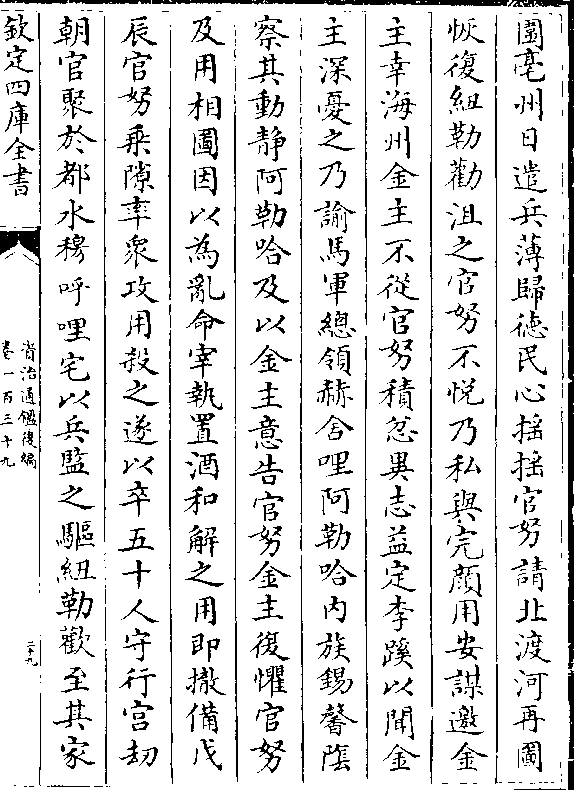 圍亳州日遣兵薄歸德民心揺揺官努請北渡河再圖
恢復紐勒歡沮之官努不悦乃私與完顔用安謀邀金
主幸海州金主不從官努積忿異志益定李蹊以聞金
主深憂之乃諭馬軍總領赫舍哩阿勒哈内族錫馨䕃
察其動静阿勒哈及以金主意告官努金主復懼官努
及用相圖因以為亂命宰執置酒和解之用即撤備戊
辰官努乗隙率衆攻用殺之遂以卒五十人守行宫刼
朝官聚於都水穆呼哩宅以兵監之驅紐勒歡至其家
欽定四庫全書
資治通鑑後編
卷一百三十九
二十九